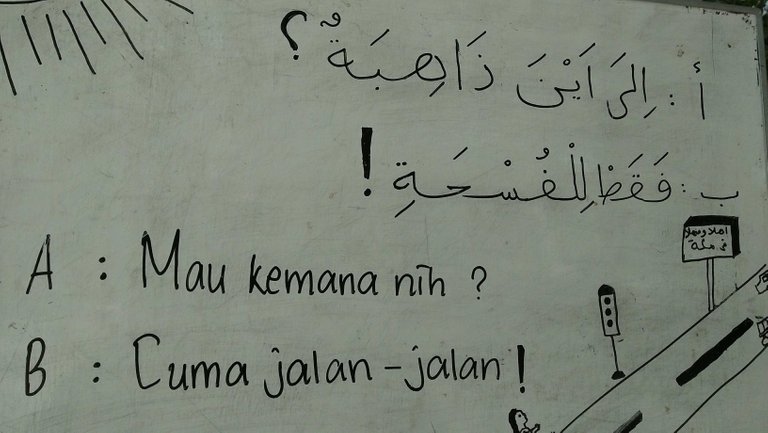 أ : اِلىَ اَيْنَ ذَاهِبَةٌ ؟
ب : فَقَطْ لِلْفُسْحَةِ !
A : Mau kemana nih ?
B : Cuma jalan - jalan !
اهلا وسهلا
في مكة